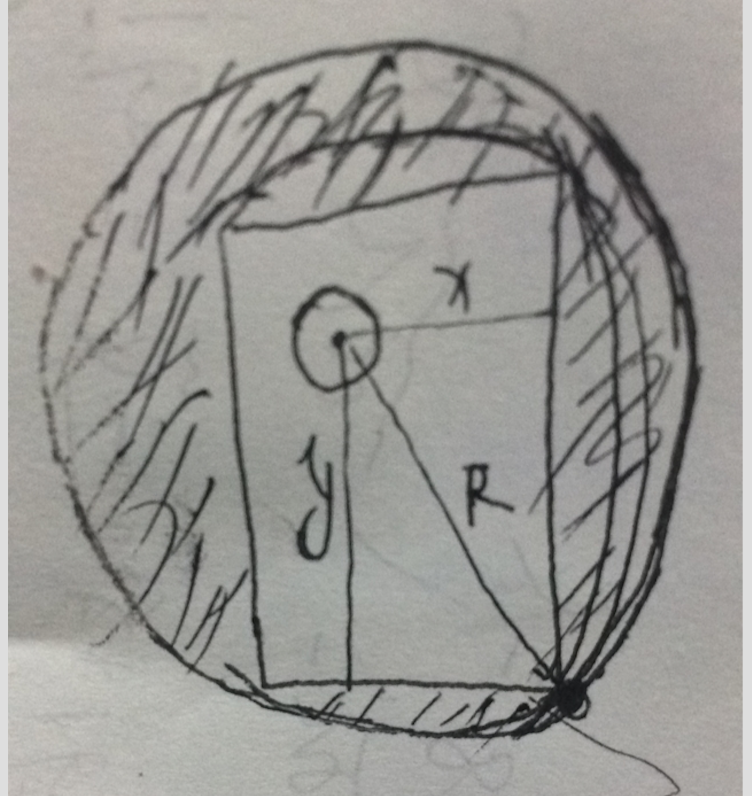 x
y
R